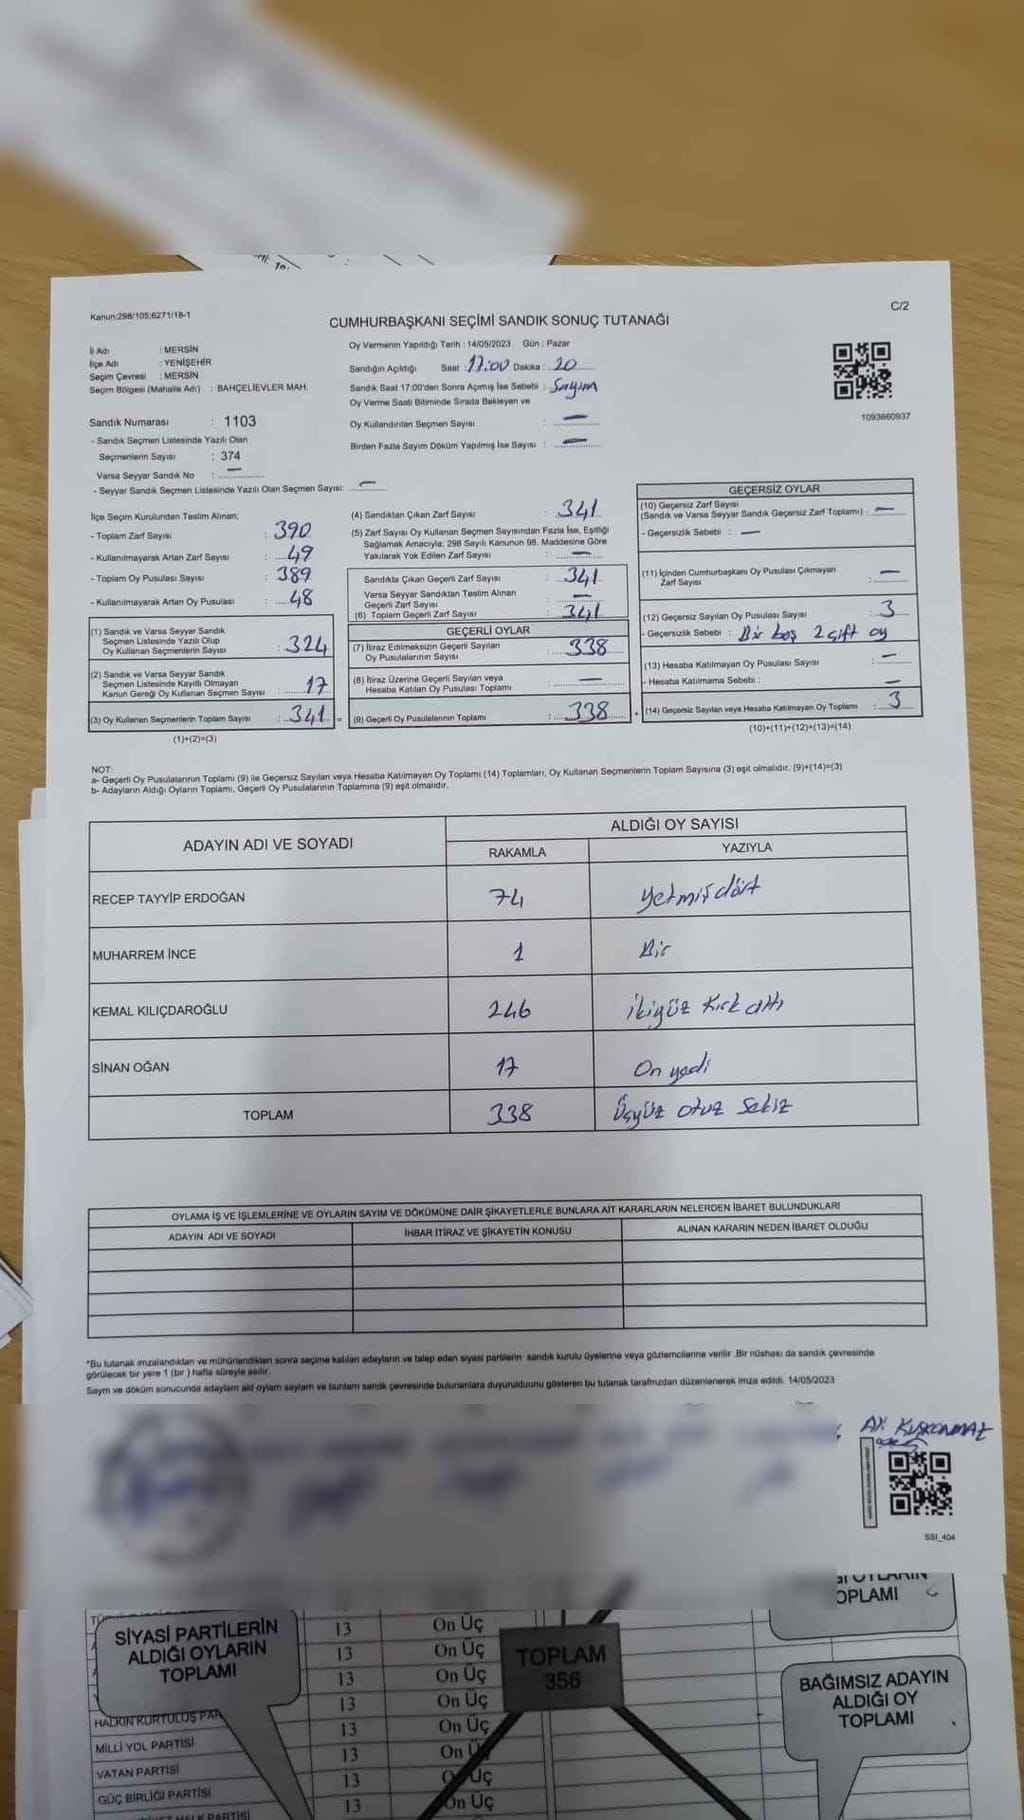 Kanun:298/105;6271/18-1
C/2
CUMHURBAŞKANI SEÇİMİ SANDIK SONUÇ TUTANAĞI
İl Adı : MERSİN
İlçe Adı : YENİŞEHİR
Seçim Çevresi : MERSİN
Seçim Bölgesi (Mahalle Adı) : BAHÇELİEVLER MAH.
Oy Vermenin Yapıldığı Tarih : 14/05/2023 Gün : Pazar
Sandığın Açıldığı Saat : 17:00 Dakika : 20
Sandık Saat 17:00'den Sonra Açımış İse Sebebi : Sayım
Oy Verme Saati Bitiminde Sırada Bekleyen ve
Oy Kullandırılan Seçmen Sayısı : —
Birden Fazla Sayım Döküm Yapılmış İse Sayısı : —
1093660937
Sandık Numarası : 1103
- Sandık Seçmen Listesinde Yazılı Olan
Seçmenlerin Sayısı : 374
Varsa Seyyar Sandık No : —
- Seyyar Sandık Seçmen Listesinde Yazılı Olan Seçmen Sayısı: —
İlçe Seçim Kurulundan Teslim Alınan;
- Toplam Zarf Sayısı : 390
- Kullanılmayarak Artan Zarf Sayısı : 49
- Toplam Oy Pusulası Sayısı : 389
- Kullanılmayarak Artan Oy Pusulası : 48
(1) Sandık ve Varsa Seyyar Sandık
Seçmen Listesinde Yazılı Olup
Oy Kullanan Seçmenlerin Sayısı : 324
(2) Sandık ve Varsa Seyyar Sandık
Seçmen Listesinde Kayıtlı Olmayan
Kanun Gereği Oy Kullanan Seçmen Sayısı : 17
(3) Oy Kullanan Seçmenlerin Toplam Sayısı : 341 =
(1)+(2)=(3)
(4) Sandıktan Çıkan Zarf Sayısı : 341
(5) Zarf Sayısı Oy Kullanan Seçmen Sayısından Fazla İse, Eşitliği
Sağlamak Amacıyla, 298 Sayılı Kanunun 98. Maddesine Göre
Yakılarak Yok Edilen Zarf Sayısı : —
Sandıkta Çıkan Geçerli Zarf Sayısı : 341
Varsa Seyyar Sandıktan Teslim Alınan
Geçerli Zarf Sayısı : —
(6) Toplam Geçerli Zarf Sayısı : 341
GEÇERLİ OYLAR
(7) İtiraz Edilmeksizin Geçerli Sayılan
Oy Pusulalarının Sayısı : 338
(8) İtiraz Üzerine Geçerli Sayılan veya
Hesaba Katılan Oy Pusulası Toplamı : —
(9) Geçerli Oy Pusulalarının Toplamı : 338 +
GEÇERSİZ OYLAR
(10) Geçersiz Zarf Sayısı
(Sandık ve Varsa Seyyar Sandık Geçersiz Zarf Toplamı) : —
- Geçersizlik Sebebi : —
(11) İçinden Cumhurbaşkanı Oy Pusulası Çıkmayan
Zarf Sayısı : —
(12) Geçersiz Sayılan Oy Pusulası Sayısı : 3
- Geçersizlik Sebebi : Bir boş 2 çift oy
(13) Hesaba Katılmayan Oy Pusulası Sayısı : —
- Hesaba Katılmama Sebebi : —
(14) Geçersiz Sayılan veya Hesaba Katılmayan Oy Toplamı : 3
(10)+(11)+(12)+(13)=(14)
NOT:
a- Geçerli Oy Pusulalarının Toplamı (9) ile Geçersiz Sayılan veya Hesaba Katılmayan Oy Toplamı (14) Toplamları, Oy Kullanan Seçmenlerin Toplam Sayısına (3) eşit olmalıdır. (9)+(14)=(3)
b- Adayların Aldığı Oyların Toplamı, Geçerli Oy Pusulalarının Toplamına (9) eşit olmalıdır.
ADAYIN ADI VE SOYADI
ALDIĞI OY SAYISI
RAKAMLA YAZIYLA
RECEP TAYYİP ERDOĞAN 74 Yetmişdört
MUHARREM İNCE 1 Bir
KEMAL KILIÇDAROĞLU 246 İkiyüz Kırk altı
SİNAN OĞAN 17 On yedi
TOPLAM 338 Üçyüz otuz sekiz
OYLAMA İŞ VE İŞLEMLERİNE VE OYLARIN SAYIM VE DÖKÜMÜNE DAİR ŞİKAYETLERLE BUNLARA AİT KARARLARIN NELERDEN İBARET BULUNDUKLARI
ADAYIN ADI VE SOYADI İHBAR İTİRAZ VE ŞİKAYETİN KONUSU ALINAN KARARIN NEDEN İBARET OLDUĞU
*Bu tutanak imzalandıktan ve mühürlendikten sonra seçime katılan adayların ve talep eden siyasi partilerin sandık kurulu üyelerine veya gözlemcilerine verilir .Bir nüshası da sandık çevresinde
görülecek bir yere 1 (bir ) hafta süreyle asılır.
Sayım ve döküm sonucunda adayların ald oyların sayların ve bunların sandık çevresinde bulunanlara duyurulduunu gösteren bu tutanak tarafımzdan düzenlenerek imza edildi. 14/05/2023
SSI_404
OPLAMI
SİYASİ PARTİLERİN
ALDIĞI OYLARIN
TOPLAMI
TOPLAM
356
BAĞIMSIZ ADAYIN
ALDIĞI OY
TOPLAMI
13 On Üç
13 On Üç
13 On Üç
13 On Üç
HALKIN KURTULUŞ PAR 13 On Üç
MİLLİ YOL PARTİSİ 13 On Ü
VATAN PARTİSİ 13 Üç
GÜÇ BİRLİĞİ PARTİSİ 13 On Üç